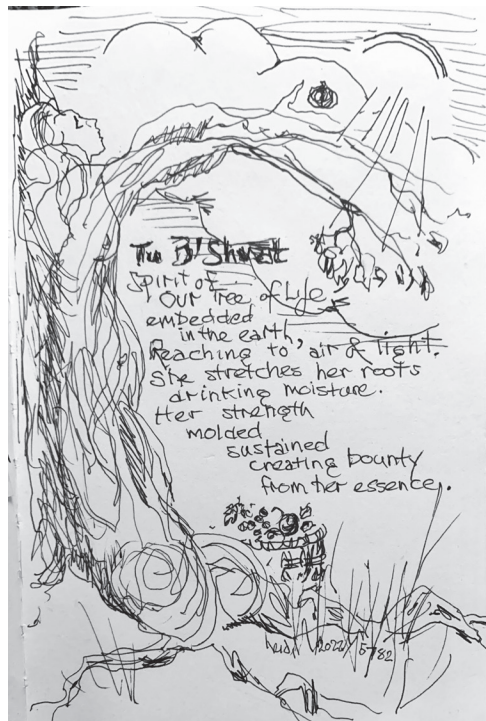 Tu B'Shvat
Spirit of
Our Tree of Life
embedded
in the earth,
Reaching to air & light.
She stretches her roots
drinking moisture.
Her strength
molded
sustained
creating bounty
from her essence.
2022 5782